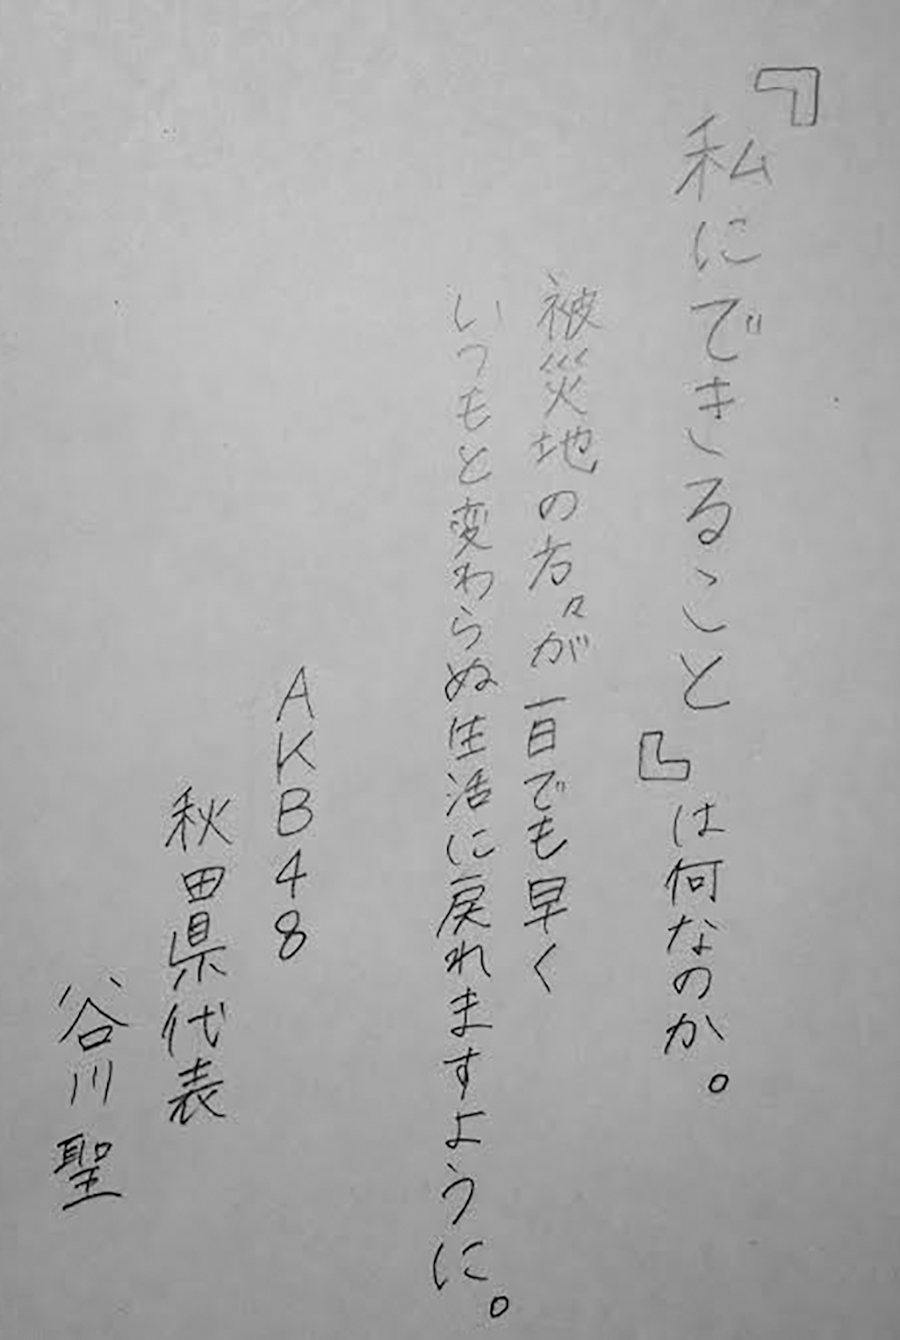 『私にできること』は何なのか。
被災地の方々が一日でも早く
いつもと変わらぬ生活に戻れますように。
AKB48
秋田県代表
谷川聖